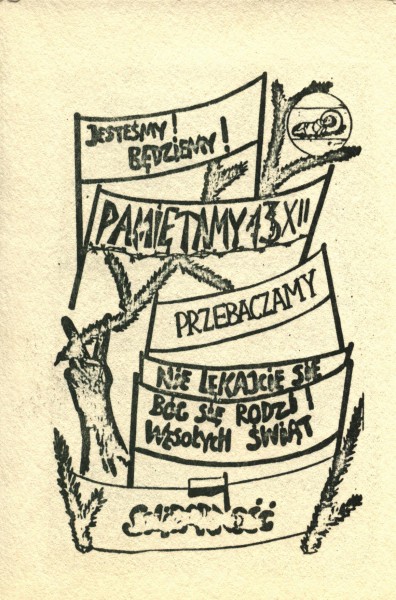 JESTEŚMY!
BĘDZIEMY!
PAMIĘTAMY 13 XII
PRZEBACZAMY
NIE LĘKAJCIE SIĘ
BÓG SIĘ RODZI!
WESOŁYCH ŚWIĄT
SOLIDARNOŚĆ